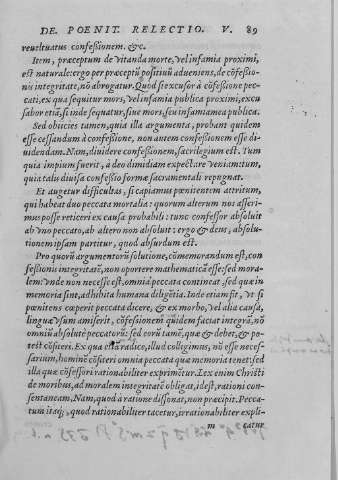 DE. POENIT. RELECTIO. V. 89
reueltuatus confeßionem. &c.
Item, præceptum de vitanda morte, vel infamia proximi,
est naturale: ergo per præceptū positiuū adueniens, de cōfeßio-
nis integritate, nō abrogatur. Quod si excusor à cōfeßione pec-
cati, ex qua sequitur mors, vel infamia publica proximi, excu
sabor etiā, si inde sequatur, siue mors, seu infamia mea publica.
Sed obiicies tamen, quia illa argumenta, probant quidem
esse cessandum à confeßione, non autem confeßionem esse di-
uidendam. Nam, diuidere confeßionem, sacrilegium est. Tum
quia impium fuerit, à deo dimidiam expectare veniam: tum,
quia talis diuisa confeßio formæ sacramentali repugnat.
Et augetur difficultas, si capiamus pœnitentem attritum,
qui habeat duo peccata mortalia: quorum alterum nos asseri-
mus posse reticeri ex causa probabili: tunc confessor absoluit
ab vno peccato, ab altero non absoluit: ergo & deus, absolu-
tionem ipsam partitur, quod absurdum est.
Pro quorū argumentorū solutione, cōmemorandum est, con
feßionis integritatē, non oportere mathematicā esse: sed mora-
lem: vnde non necesse est, omnia peccata contineat: sed quæ in
memoria sint, adhibita humana diligētia. Inde etiam fit, vt si
pœnitens cœperit peccata dicere, & ex morbo, vel alia causa,
linguæ vsum amiserit, cōfeßionem quidem faciat integrā, nō
omniū absolutè peccatorū: sed eorū tamē, quæ & debet, & po-
test cōfiteri. Ex qua etiā radice, illud collegimus, nō esse neces-
sarium, hominē cōfiteri omnia peccata quæ memoria tenet: sed
illa quæ cōfessori rationabiliter exprimūtur. Lex enim Christi
de moribus, ad moralem integritatē obligat, id est, rationi con
sentaneam. Nam, quod à ratione dissonat, non præcipit. Pecca-
tum itaq;, quod rationabiliter tacetur, irrationabiliter expli-
m catur